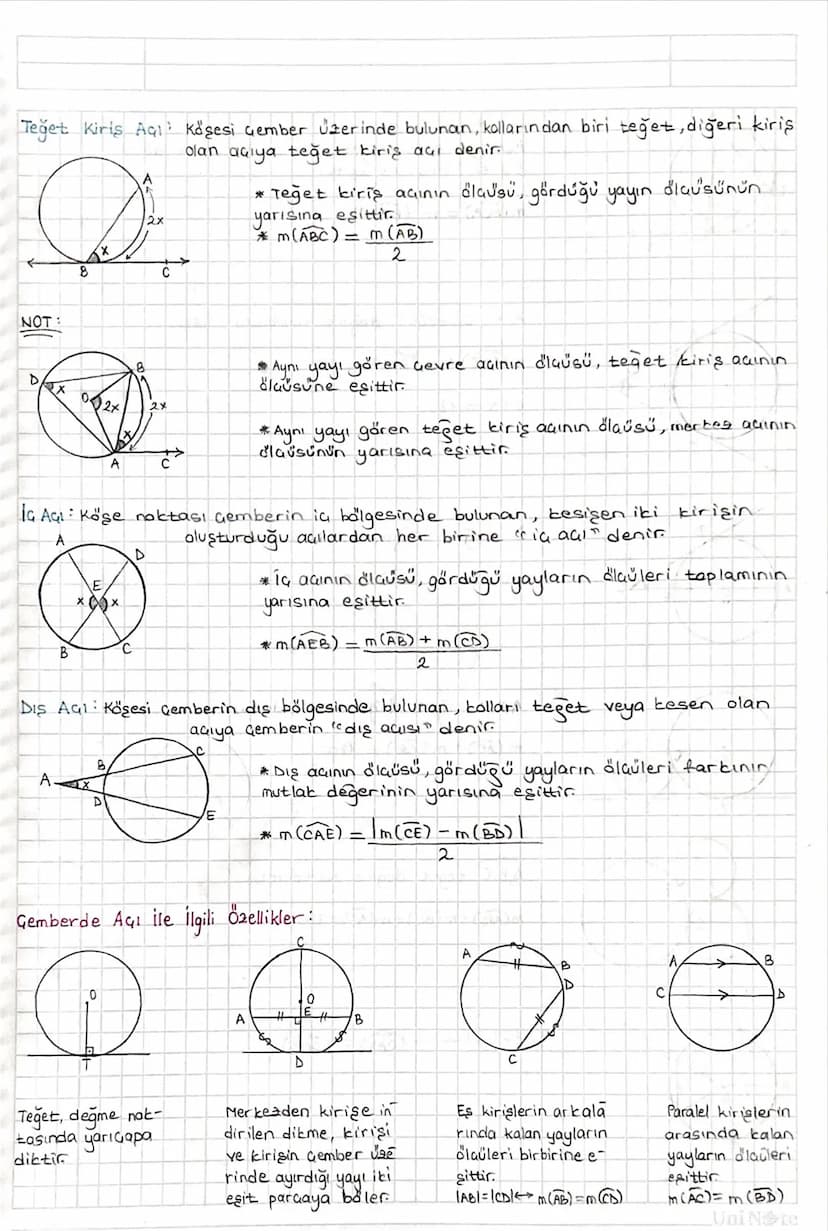 Teğet Kiriş Açı: Köşesi çember üzerinde bulunan, kollarından biri teğet, diğeri kiriş
olan açıya teğet kiriş açı denir.
A
2x
x
B
C
* Teğet kiriş açının ölçüsü, gördüğü yayın ölçüsünün
yarısına eşittir.
* m(ABC) = m(AB)
2
NOT:
D
x
B
O
2x
2x
x
A
C
* Aynı yayı gören çevre açının ölçüsü, teğet kiriş açının
ölçüsüne eşittir.
* Aynı yayı gören teğet kiriş açının ölçüsü, merkez açının
ölçüsünün yarısına eşittir.
İç Açı: Köşe noktası çemberin iç bölgesinde bulunan, kesişen iki kirişin
oluşturduğu açılardan her birine "iç açı" denir.
A
D
E
x
x
B
C
* İç açının ölçüsü, gördüğü yayların ölçüleri toplamının
yarısına eşittir.
* m(AEB) = m(AB) + m(CD)
2
Dış Açı: Köşesi çemberin dış bölgesinde bulunan, kolları teğet veya kesen olan
açıya çemberin "dış açısı" denir.
A
B
C
x
D
E
* Dış açının ölçüsü, gördüğü yayların ölçüleri farkının
mutlak değerinin yarısına eşittir.
* m(CAE) = |m(CE) - m(BD)|
2
Çemberde Açı İle İlgili Özellikler:
O
T
C
O
A
E
B
D
A
B
D
C
A
B
C
D
Teğet, değme nok-
tasında yarıçapa
diktir.
Merkezden kirişe in-
dirilen dikme, kirişi
ve kirişin çember üze-
rinde ayırdığı yayı iki
eşit parçaya böler.
Eş kirişlerin arkala-
rında kalan yayların
ölçüleri birbirine e-
şittir.
|AB|=|CD|↔m(AB)=m(CD)
Paralel kirişlerin
arasında kalan
yayların ölçüleri
eşittir.
m(AC)= m(BD)
UniNote